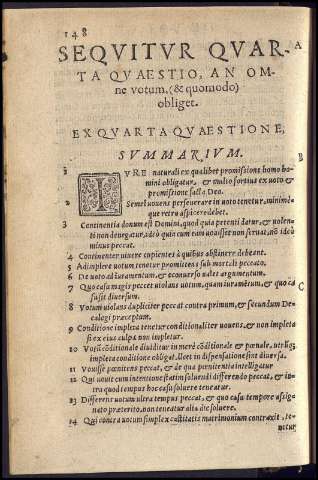 148
SEQVITVR QVAR-
A
TA QVAESTIO, AN OM-
ne votum, (& quomodo)
obliget.
EX QVARTA QVAESTIONE,
SVMMARIVM.
B
1 IVRE naturali ex qualibet promissione homo ho-
mini obligatur, & multo fortius ex voto &
promissione facta Deo.
2 Semel vouens perseuerare in voto tenetur, minimé-
que retro aspicere debet.
3 Continentia donum est Domini, quod quia petenti datur, & volen-
ti non denegatur, ideò quia cum eam vouisset non seruat, nõ ideò
minus peccat.
4 Continenter viuere cupientes à quibus abstinere debeant.
5 Adimplere votum tenetur promittens sub mortali peccato.
6 De voto ad iuramentum, & econuerso valet argumentum.
7 Quo casu magis peccet violans votum, quam iuramẽtum, & quo ca
C
su sit diuersum.
8 Votum violans dupliciter peccat contra primum, & secundum De-
calogi præceptum.
9 Conditione impleta tenetur conditionaliter vouens, & non impleta
si ex eius culpa non impletur.
10 Votũ cõditionale diuiditur in merè cõditionale & pœnale, vterq́;
impleta conditione obligat, licet in dispensatione sint diuersa.
11 Vouisse pœnitens peccat, & de qua pœnitentia intelligatur
12 Qui vouit cum intentione statim soluendi differendo peccat, & in-
tra quod tempus hoc casu soluere teneatur.
13 Differens votum vltra tempus peccat, & quo casu tempore assig-
nato præterito, non teneatur vltra dic soluere.
14 Qui contra votum simplex castitatis matrimonium contraxit, te-
netur